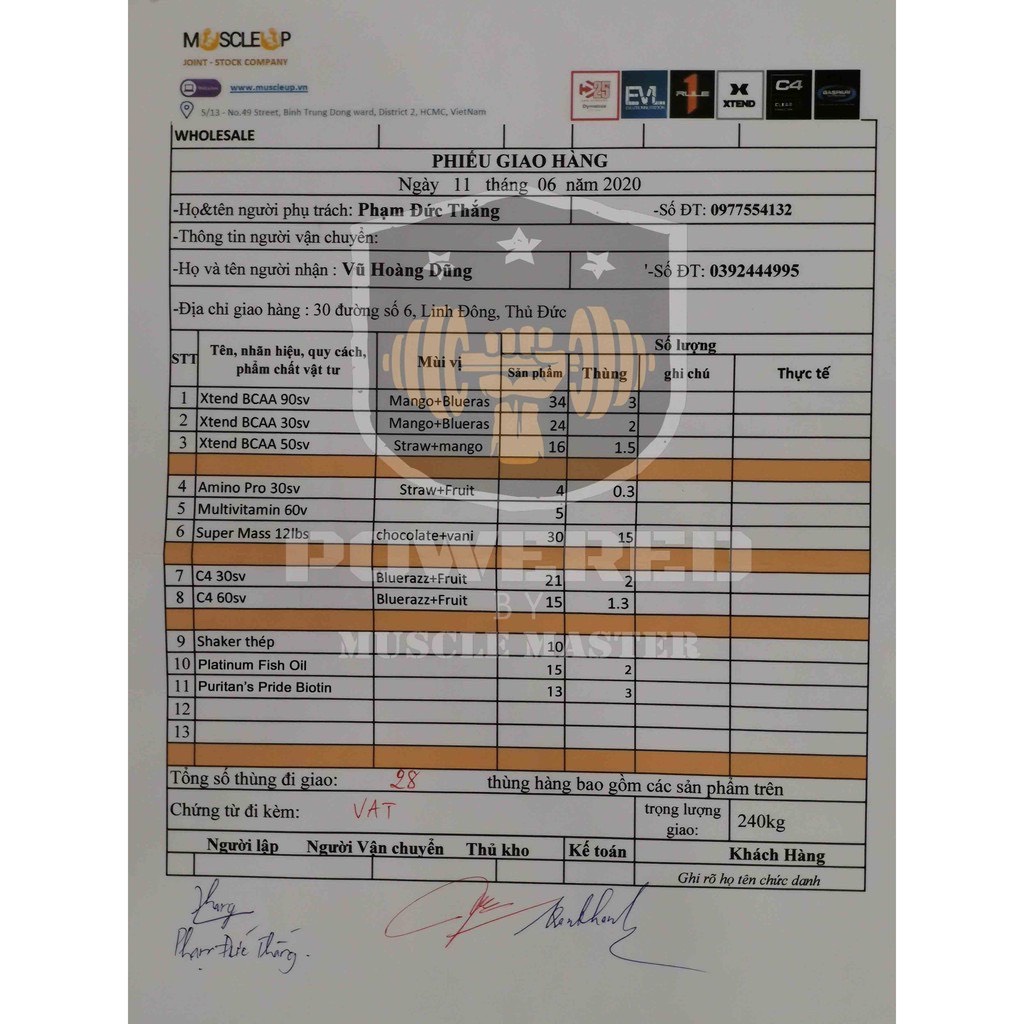 MUSCLEUP
JOINT - STOCK COMPANY
www.muscleup.vn
5/13 - No.49 Street, Bình Trưng Dong ward, District 2, HCMC, VietNam
EVL
RULE 1
XTEND
C4
WHOLESALE
PHIẾU GIAO HÀNG
Ngày 11 tháng 06 năm 2020
-Họ&tên người phụ trách: Phạm Đức Thắng -Số ĐT: 0977554132
-Thông tin người vận chuyển:
-Họ và tên người nhận : Vũ Hoàng Dũng '-Số ĐT: 0392444995
-Địa chỉ giao hàng : 30 đường số 6, Linh Đông, Thủ Đức
STT Tên, nhãn hiệu, quy cách, phẩm chất vật tư Mùi vị Số lượng
Sản phẩm Thùng ghi chú Thực tế
1 Xtend BCAA 90sv Mango+Blueras 34 3
2 Xtend BCAA 30sv Mango+Blueras 24 2
3 Xtend BCAA 50sv Straw+mango 16 1.5
4 Amino Pro 30sv Straw+Fruit 4 0.3
5 Multivitamin 60v 5
6 Super Mass 12lbs chocolate+vani 30 15
POWERED
7 C4 30sv Bluerazz+Fruit 21 2
8 C4 60sv Bluerazz+Fruit 15 1.3
BY
MUSCLE MASTER
9 Shaker thép 10
10 Platinum Fish Oil 15 2
11 Puritan's Pride Biotin 13 3
12
13
Tổng số thùng đi giao: 28 thùng hàng bao gồm các sản phẩm trên
Chứng từ đi kèm: VAT trọng lượng giao: 240kg
Người lập Người Vận chuyển Thủ kho Kế toán Khách Hàng
Ghi rõ họ tên chức danh
Thang
Phạm Đức Thắng.